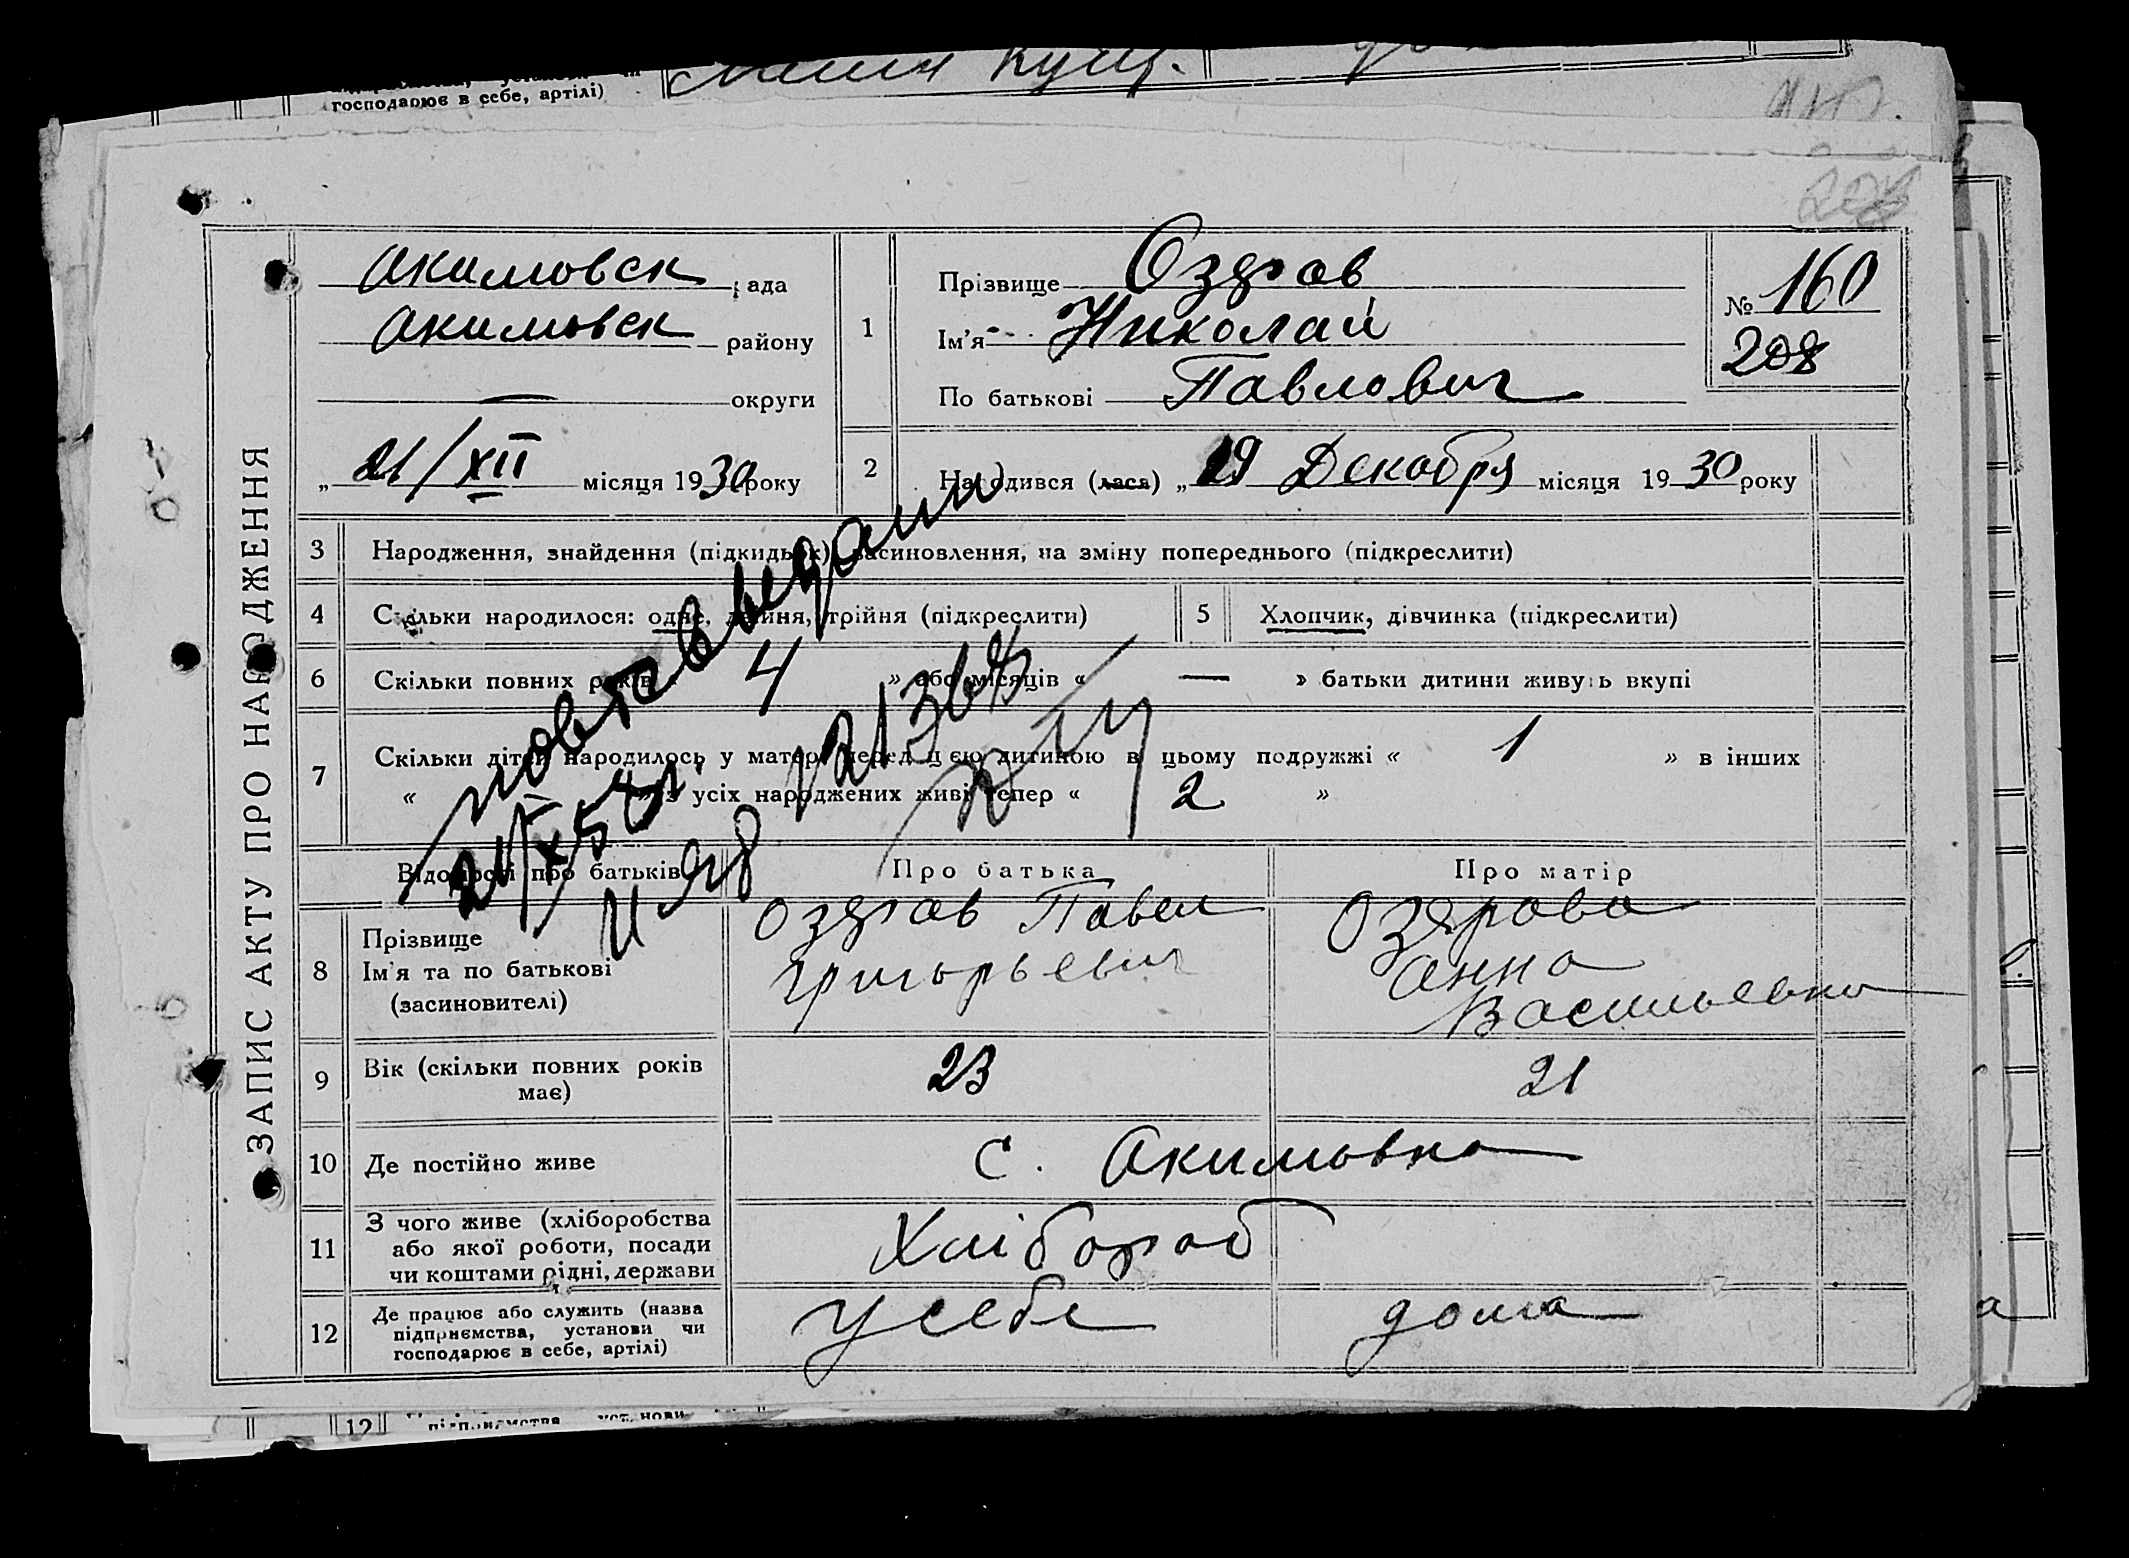 господарює в себе, артілі)
208
ЗАПИС АКТУ ПРО НАРОДЖЕННЯ
Акимовск рада
Акимовск району
— округи
„ 21/XII місяця 1930 року
1
Прізвище Оздров
Ім'я Николай
По батькові Павлович
№ 160
208
2 Народився (лася) „ 19 Декабря місяця 1930 року
3 Народження, знайдення (підкидьок), засиновлення, на зміну попереднього (підкреслити)
4 Скільки народилося: одне, двійня, трійня (підкреслити)
5 Хлопчик, дівчинка (підкреслити)
6 Скільки повних років « 4 » або місяців « — » батьки дитини живуть вкупі
7 Скільки дітей народилось у матери перед цією дитиною в цьому подружжі « 1 » в інших
« » з усіх народжених живі тепер « 2 »
повтор выдали
Відомості про батьків
Про батька
Про матір
8 Прізвище
Ім'я та по батькові
(засиновителі)
Оздров Павел
Григорьевич
Оздрова
Анна
Васильевна
9 Вік (скільки повних років
має)
23
21
10 Де постійно живе
с. Акимовка
11 З чого живе (хліборобства
або якої роботи, посади
чи коштами рідні, держави
Хлібороб
12 Де працює або служить (назва
підприємства, установи чи
господарює в себе, артілі)
у себе
дома
12 підприємства, установи